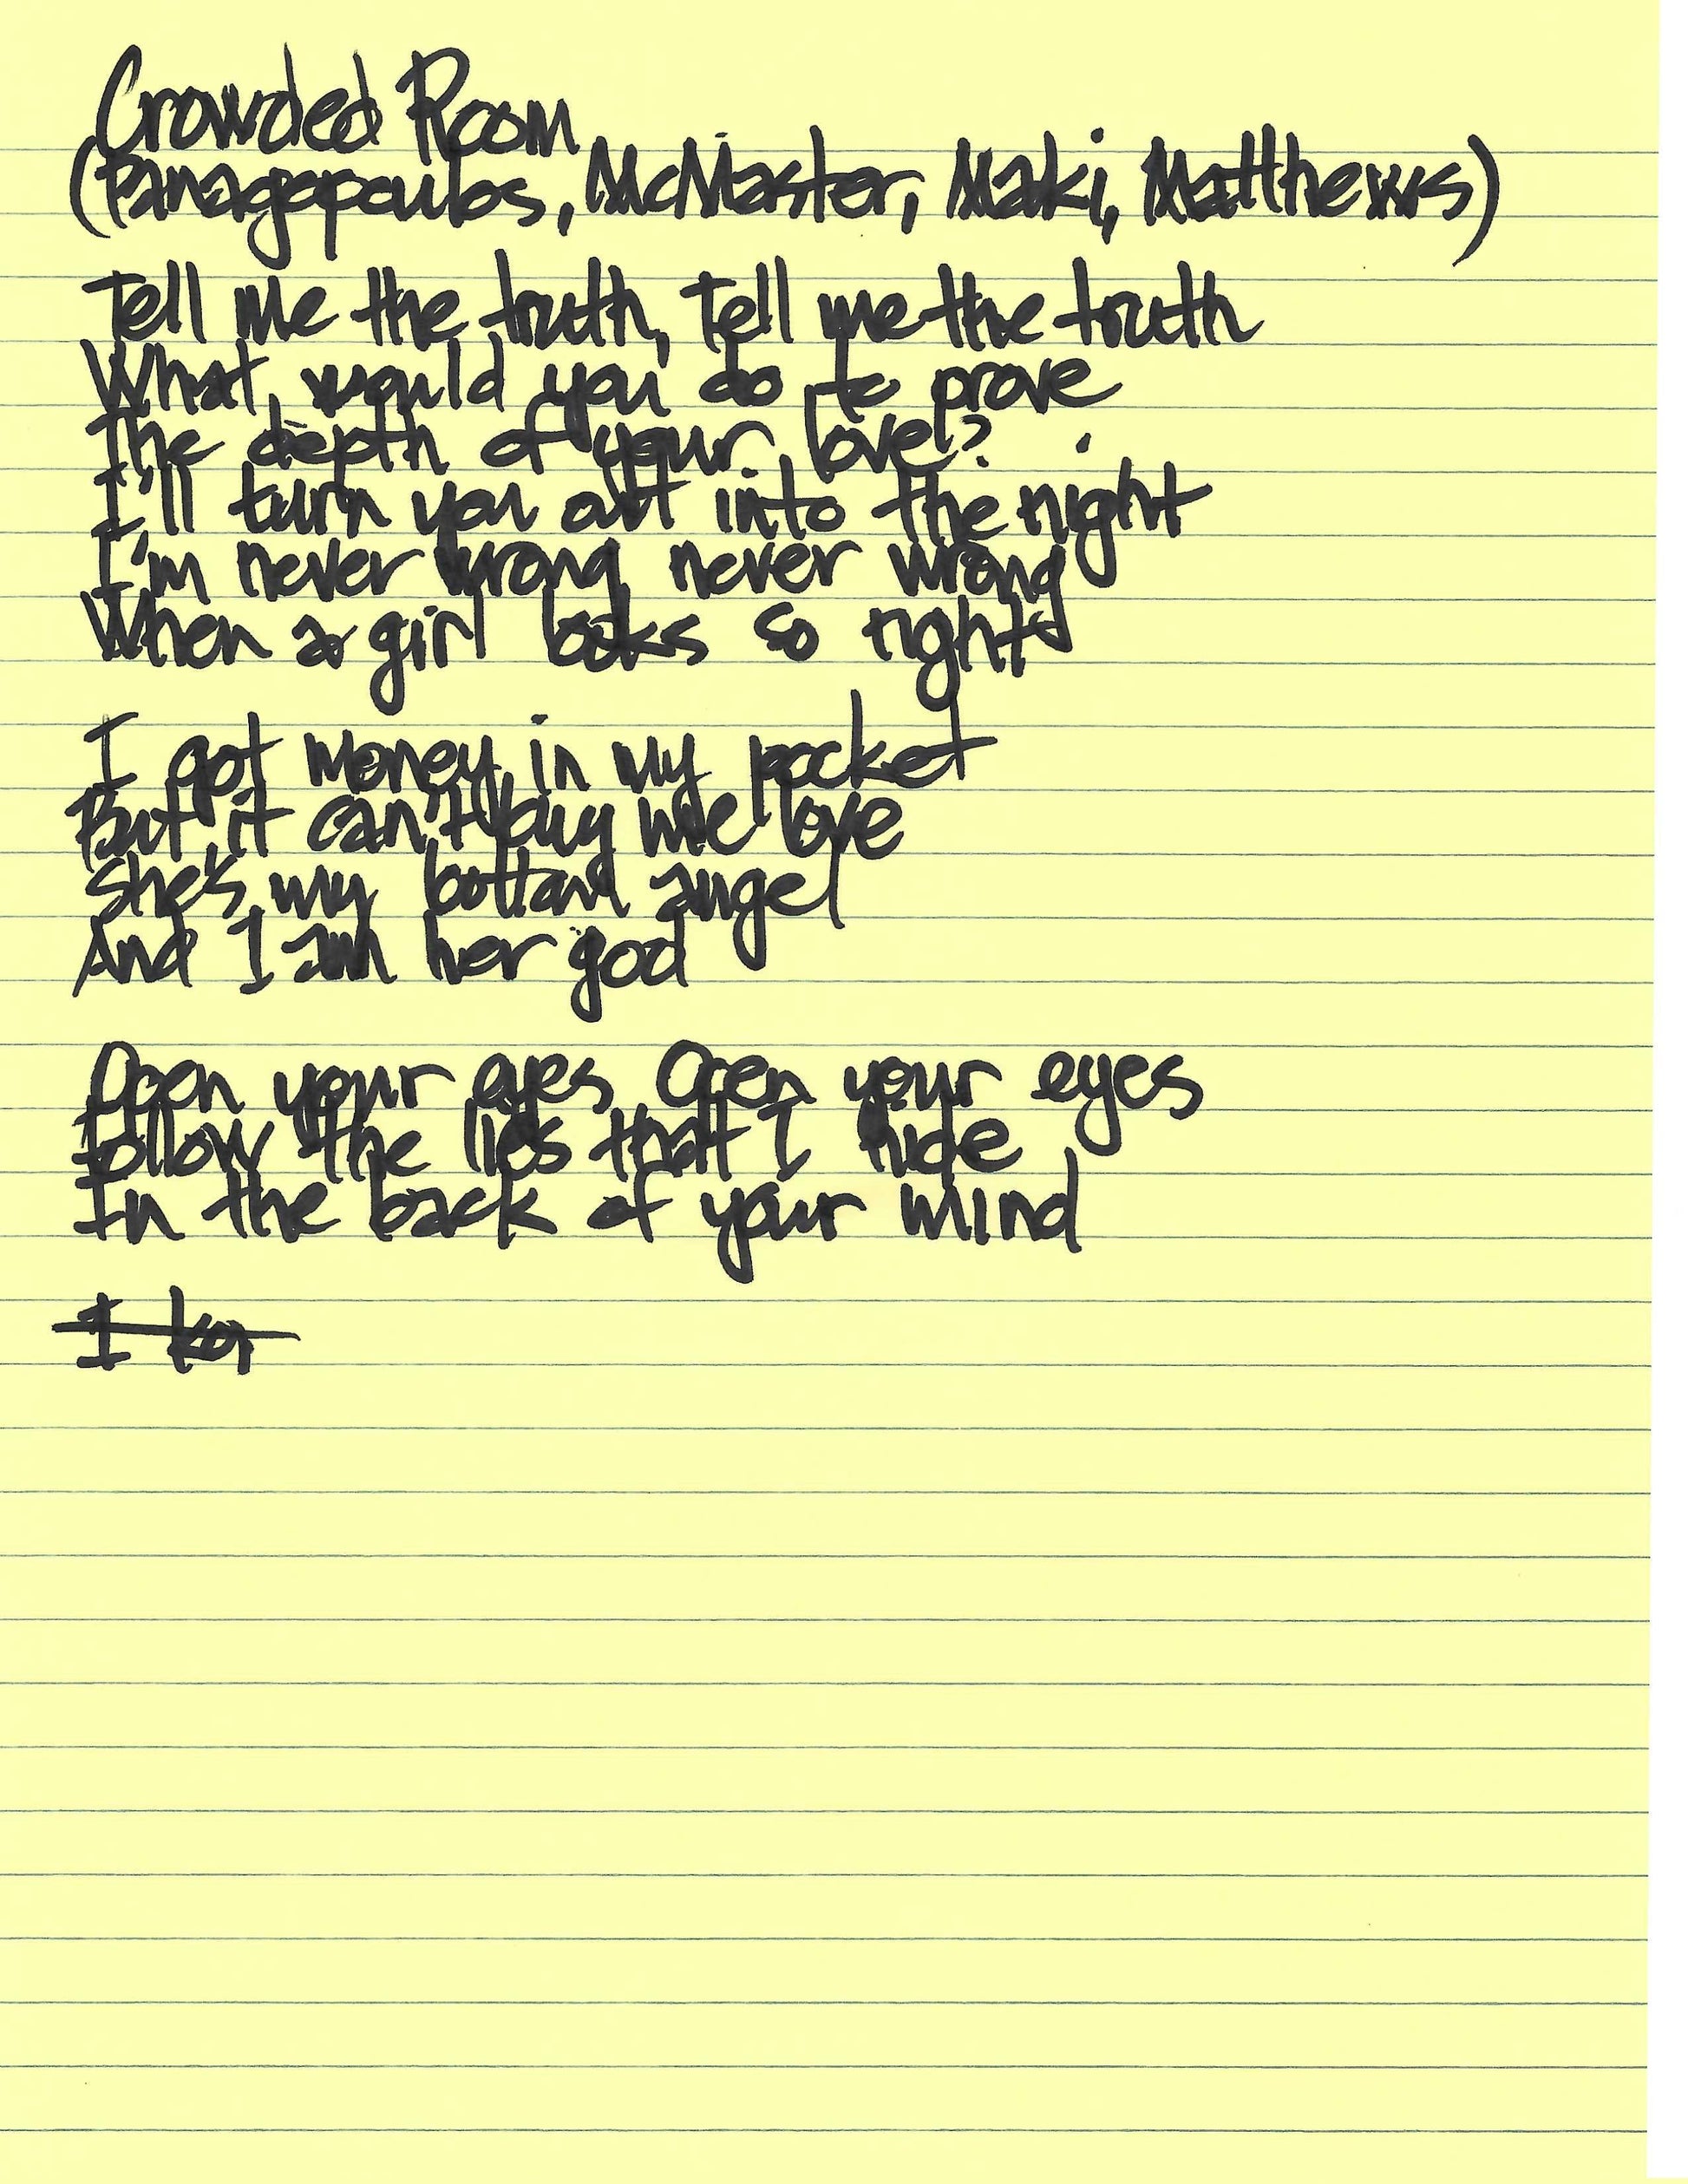 Crowded Room
(Panagopoulos, McMaster, Maki, Matthews)
Tell me the truth, Tell me the truth
What would you do to prove
The depth of your love?
I'll turn you out into the night
I'm never wrong, never wrong
When a girl looks so right
I got money in my pocket
But it can't buy me love
She's my bottom angel
And I am her god
Open your eyes, Open your eyes
Follow the lies that I hide
In the back of your mind
I